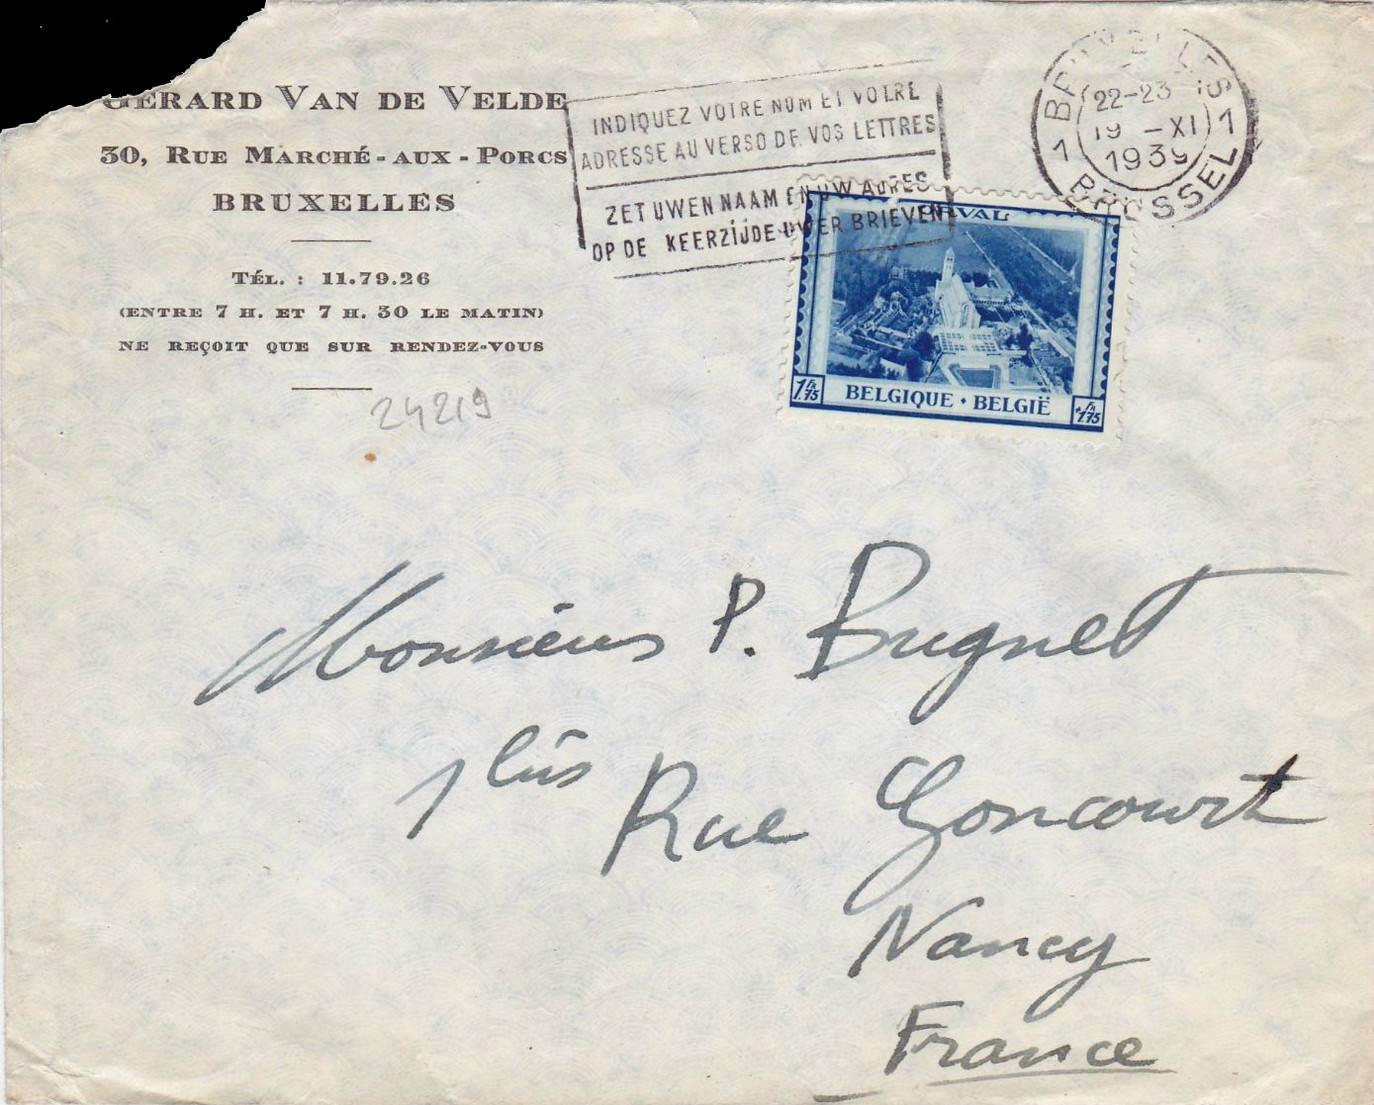 GÉRARD VAN DE VELDE
30, RUE MARCHÉ-AUX-PORCS
BRUXELLES
TÉL. : 11.79.26
(ENTRE 7 H. ET 7 H. 30 LE MATIN)
NE REÇOIT QUE SUR RENDEZ-VOUS
24219
INDIQUEZ VOTRE NOM ET VOTRE
ADRESSE AU VERSO DE VOS LETTRES
ZET UWEN NAAM EN UW ADRES
OP DE KEERZIJDE UWER BRIEVEN
BRUXELLES
22-23
19 -XI
1939
1 1
BRUSSEL
ORVAL
1 FR. 75
BELGIQUE · BELGIË
1 FR. 75
Monsieur P. Bugnet
1 bis Rue Goncourt
Nancy
France